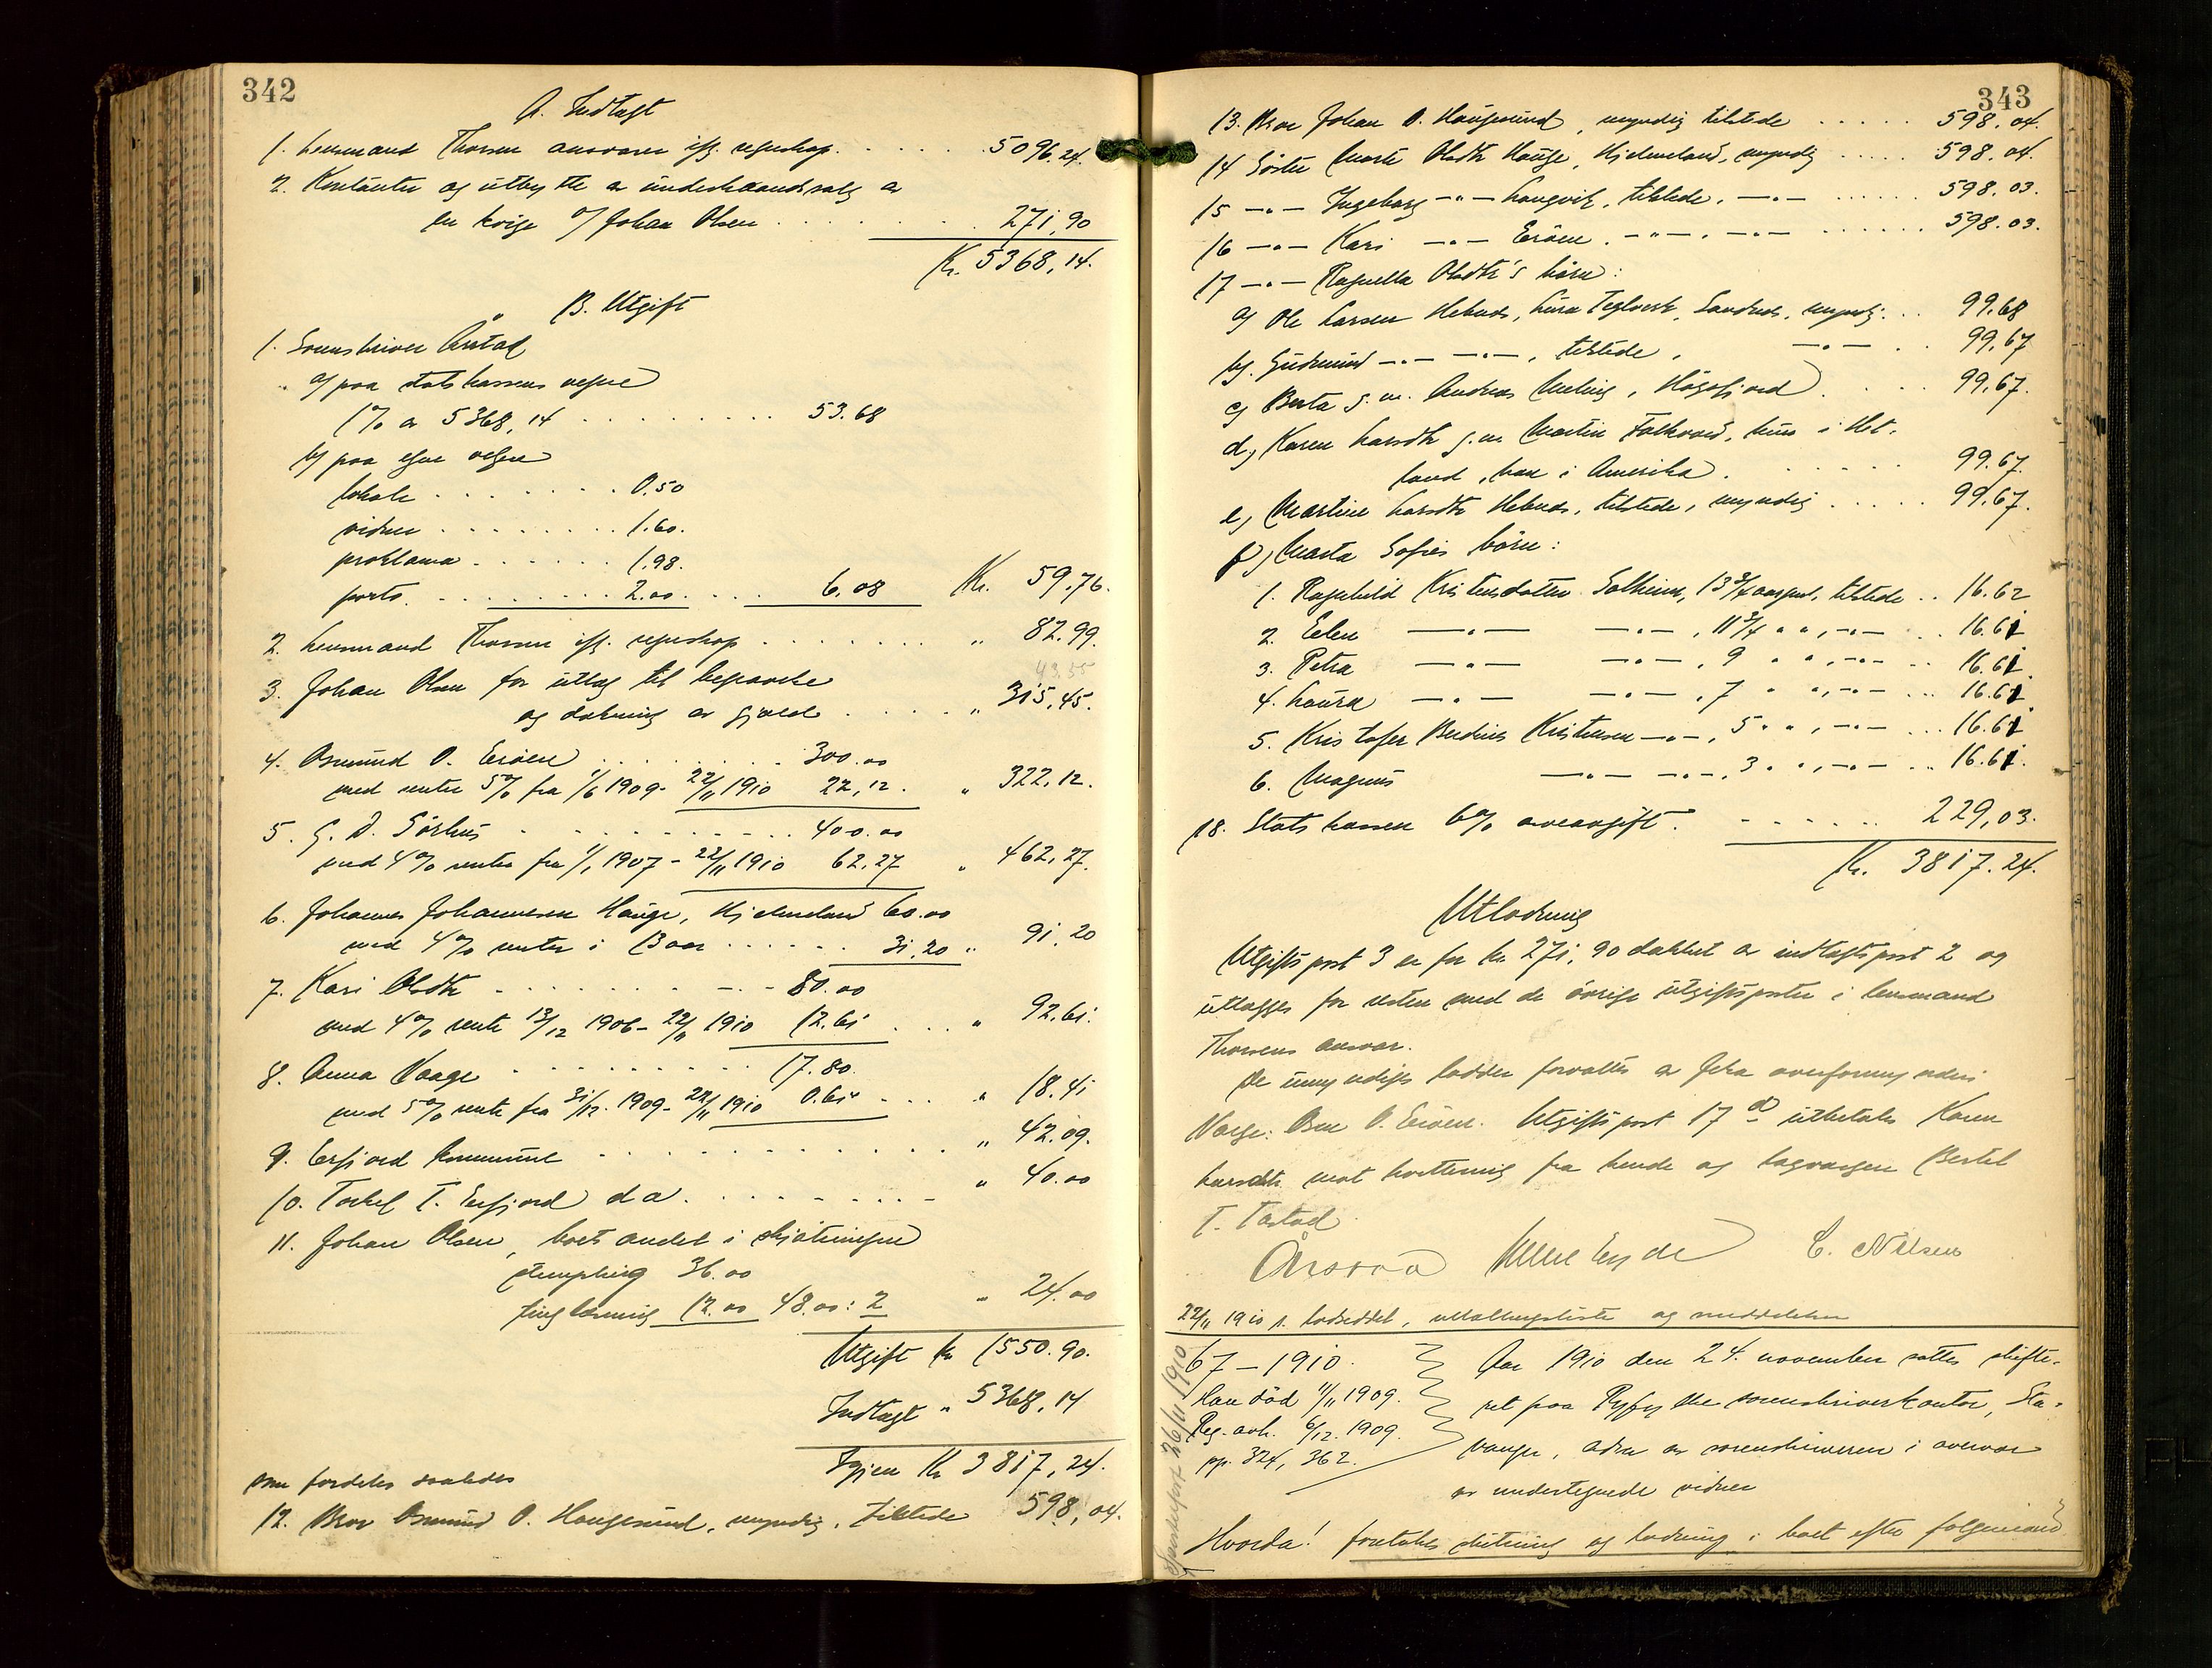 342
A. Indtægt
1. Lensmand Thorsen ansvarer iflg. regnskap. . . . . . 5096,24.
2. Kontanter og utbytte av underhaandssalg av
en kvige v/ Johan Olsen . . . . . . . 271,90
Kr. 5368,14.
B. Utgift
1. Sorenskriver Årstad
a) paa statskassens vegne
1% av 5368,14 . . . . . . . . 53.68
b) paa egne vegne
lokale . . . . . . . 0.50
vidner . . . . . . . 1.60.
proklama . . . . . . 1.98.
porto . . . . . . . . 2.00 . . . . 6.08 Kr. 59.76.
2. Lensmand Thorsen iflg. regnskap . . . . . . . " 82.99.
43.55
3. Johan Olsen for utlæg til begravelse
og dækning av gjæld . . . . . " 315,45.
4. Osmund O. Erøen . . . . . . . 300.00
med renter 5% fra 1/6 1909 - 22/11 1910 22,12. " 322,12.
5. G. D. Sørhus . . . . . . . . 400.00
med 4% renter fra 1/1 1907 - 22/11 1910 62,27 " 462,27.
6. Johannes Johannesen Hauge, Hjelmeland 60.00
med 4% renter i 13 aar . . . . . . 31.20 " 91.20
7. Kari Olsdtr . . . . . . . . 80.00
med 4% rente 13/12 1906 - 22/11 1910 12.61 . . . " 92.61.
8. Anna Vaage . . . . . . . . . 17.80.
med 5% rente fra 31/12. 1909 - 22/11 1910 0.61 . . . " 18.41
9. Erfjord kommune . . . . . . . . . . " 42.09.
10. Torkel T. Erfjord do . . . . . . . . " 40.00
11. Johan Olsen, boets andel i skjøtningen
stempling 36.00
tinglæsning 12.00 48.00 : 2 " 24.00
Utgift kr 1550.90.
Indtægt " 5368,14
Igjen Kr 3817,24.
som fordeles saaledes
12. Bror Osmund O. Haugesund, myndig, tilstede 598,04.
343
13. Bror Johan O. Haugesund, myndig tilstede . . . . . 598.04.
14 Søster Marte Olsdtr Hauge, Hjelmeland, myndig . . . . . 598.04.
15 —"— Ingeborg —"— Langvik, tilstede, —"— . . . . . . 598.03.
16 —"— Kari —"— Erøen. —"—. —"— . . . . . . 598.03.
17 —"— Ragnella Olsdtr's børn:
a) Ole Larsen Hebnes, Lura Teglverk, Sandnes, myndig. . . 99.68
b). Gudmund —"— —"—, tilstede, —"— . . 99.67
c) Berta g.m. Andreas Meling, Høgsfjord . . . . 99.67.
d) Karen Larsdtr g.m. Martin Folkvord, hun i Het-
land, han i Amerika . . . . . . . 99.67.
e) Martine Larsdtr Hebnes, tilstede, myndig . . . . . 99.67.
f) Marta Sofies børn:
1. Ragnhild Kristensdatter Solheim, 13 3/4 aar gml, tilstede . . 16.62
2. Elen —"— —"—, 11 3/4 " ", —"— . . 16.61
3. Petra —"— —"—, 9 " ", —"— . . 16.61.
4. Laura —"— —"—, 7 " ", —"— . . . 16.61
5. Kristofer Berdines Kristensen —"—, 5 " ", —"— . . . 16.61
6. Magnus —"— —"—, 3 " ", —"— . . 16.61.
18. Statskassen 6% arveavgift. . . . . . . 229,03.
Kr. 3817.24.
Utlodning
Utgiftspost 3 er for kr 271,90 dækket av indtægtspost 2 og
utlægges for resten med de øvrige utgiftsposter i lensmand
Thorsens ansvar.
De umyndiges lodder forvaltes av Jelsa overformynderi
Verge: Osm O. Erøen. Utgiftspost 17 d utbetales Karen
Larsdtr mot kvittering fra hende og lagvergen Bertel
T. Tastad
Årstad C. Nilsen
22/11 1910 s. lodseddel, utbetalingsliste og meddelelse
67 — 1910.
Han død 1/11 1909.
Reg. avh. 6/12. 1909.
pp. 324, 362.
Aar 1910 den 24. november sattes skifte-
ret paa Ryfylke sorenskriverkontor, Sta-
vanger, adm av sorenskriveren i overvær
av undertegnede vidner
Hvorda! foretokes slutning og lodning i boet efter folgemand